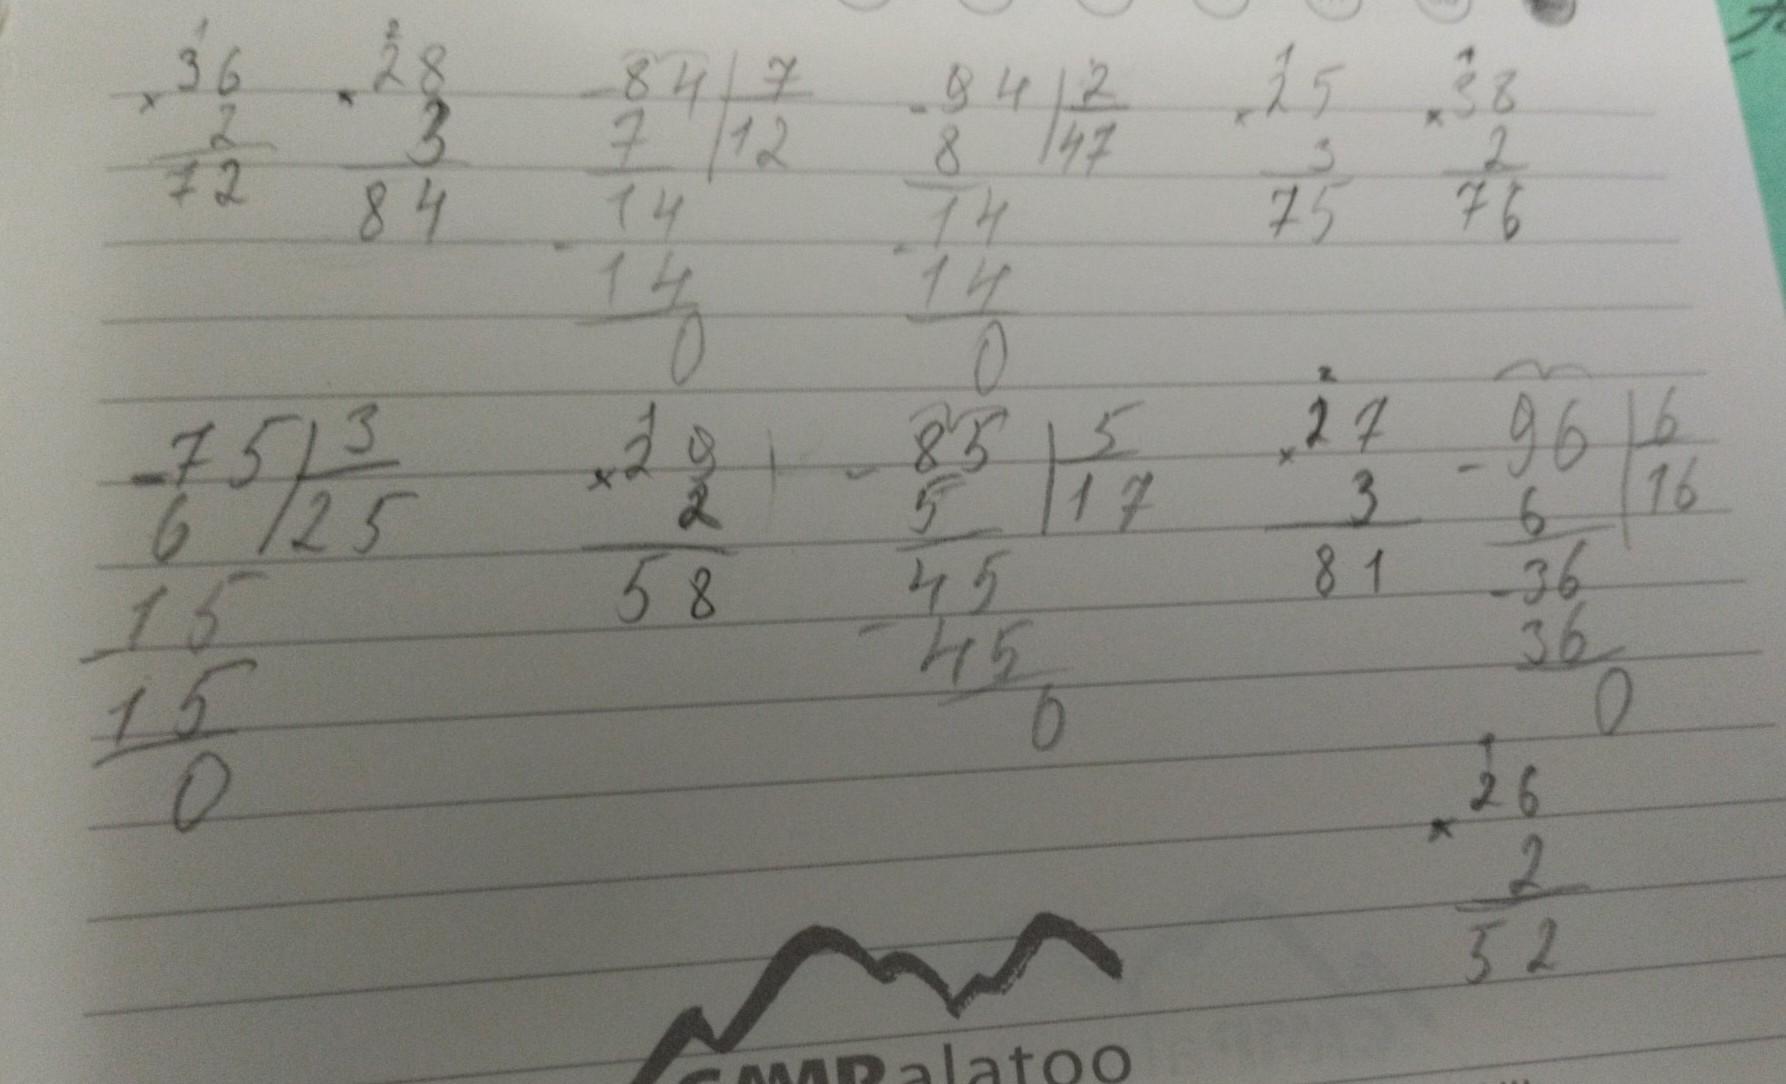 1 2 1 1
36 28 -84|7 -94|2 25 38
× 2 × 3 7 |12 8 |47 × 3 × 2
72 84 14 14 75 76
- 14 - 14
0 0
1 2
-75|3 29 -85|5 27 -96|6
6 |25 × 2 5 |17 × 3 6 |16
15 58 45 81 -36
- 15 - 45 36
0 0 0
1
26
× 2
52
alatoo